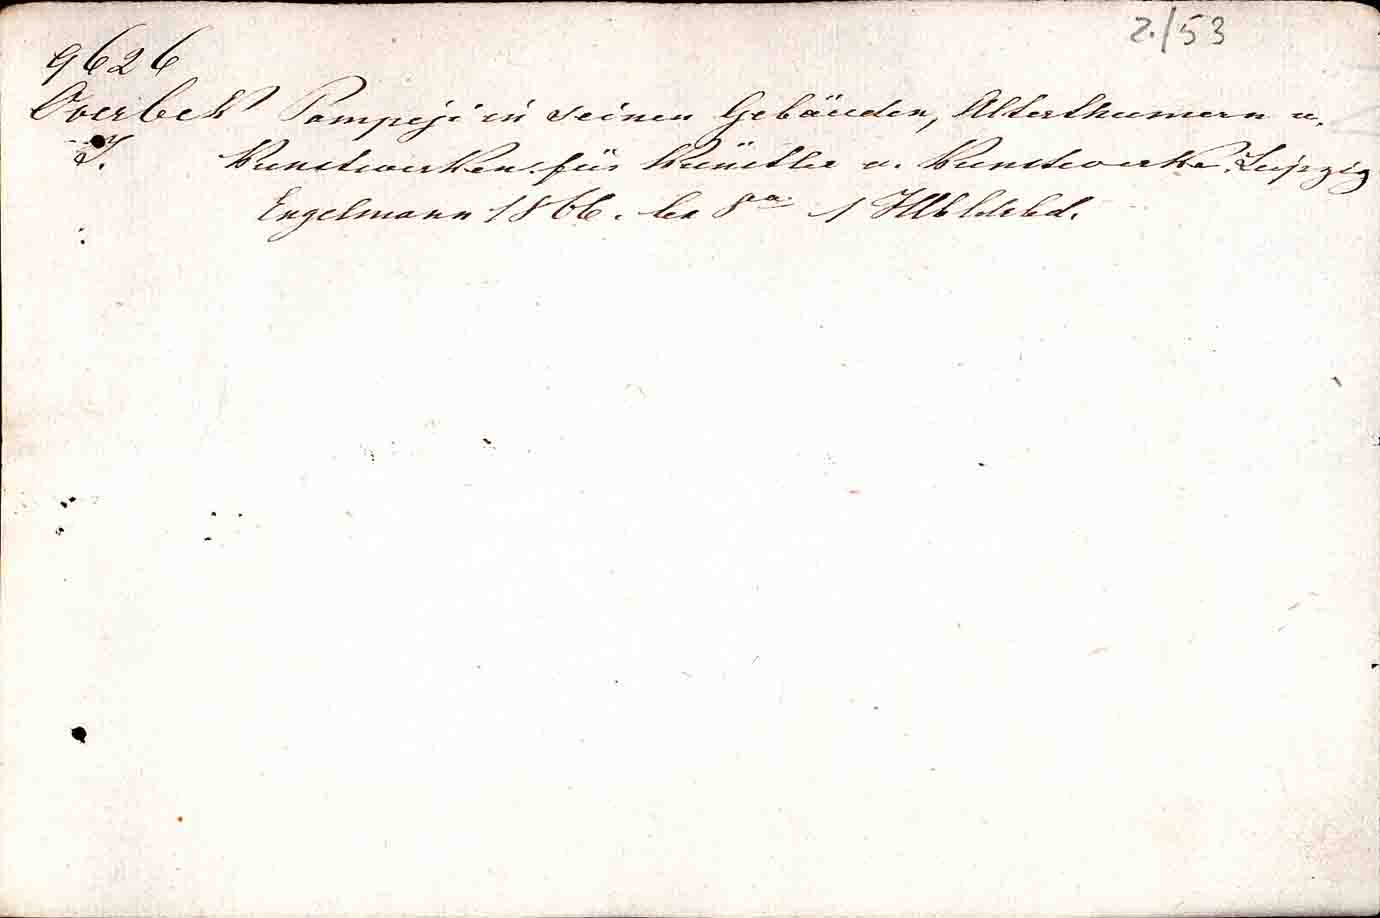 2./53
9626
Overbek Pompeji in seinen Gebäuden, Alterthumern u.
J. Kunstwerken für Künstler u. Kunstwerke. Leipzig
Engelmann 1866. 8va 1 Hlbldrbd.